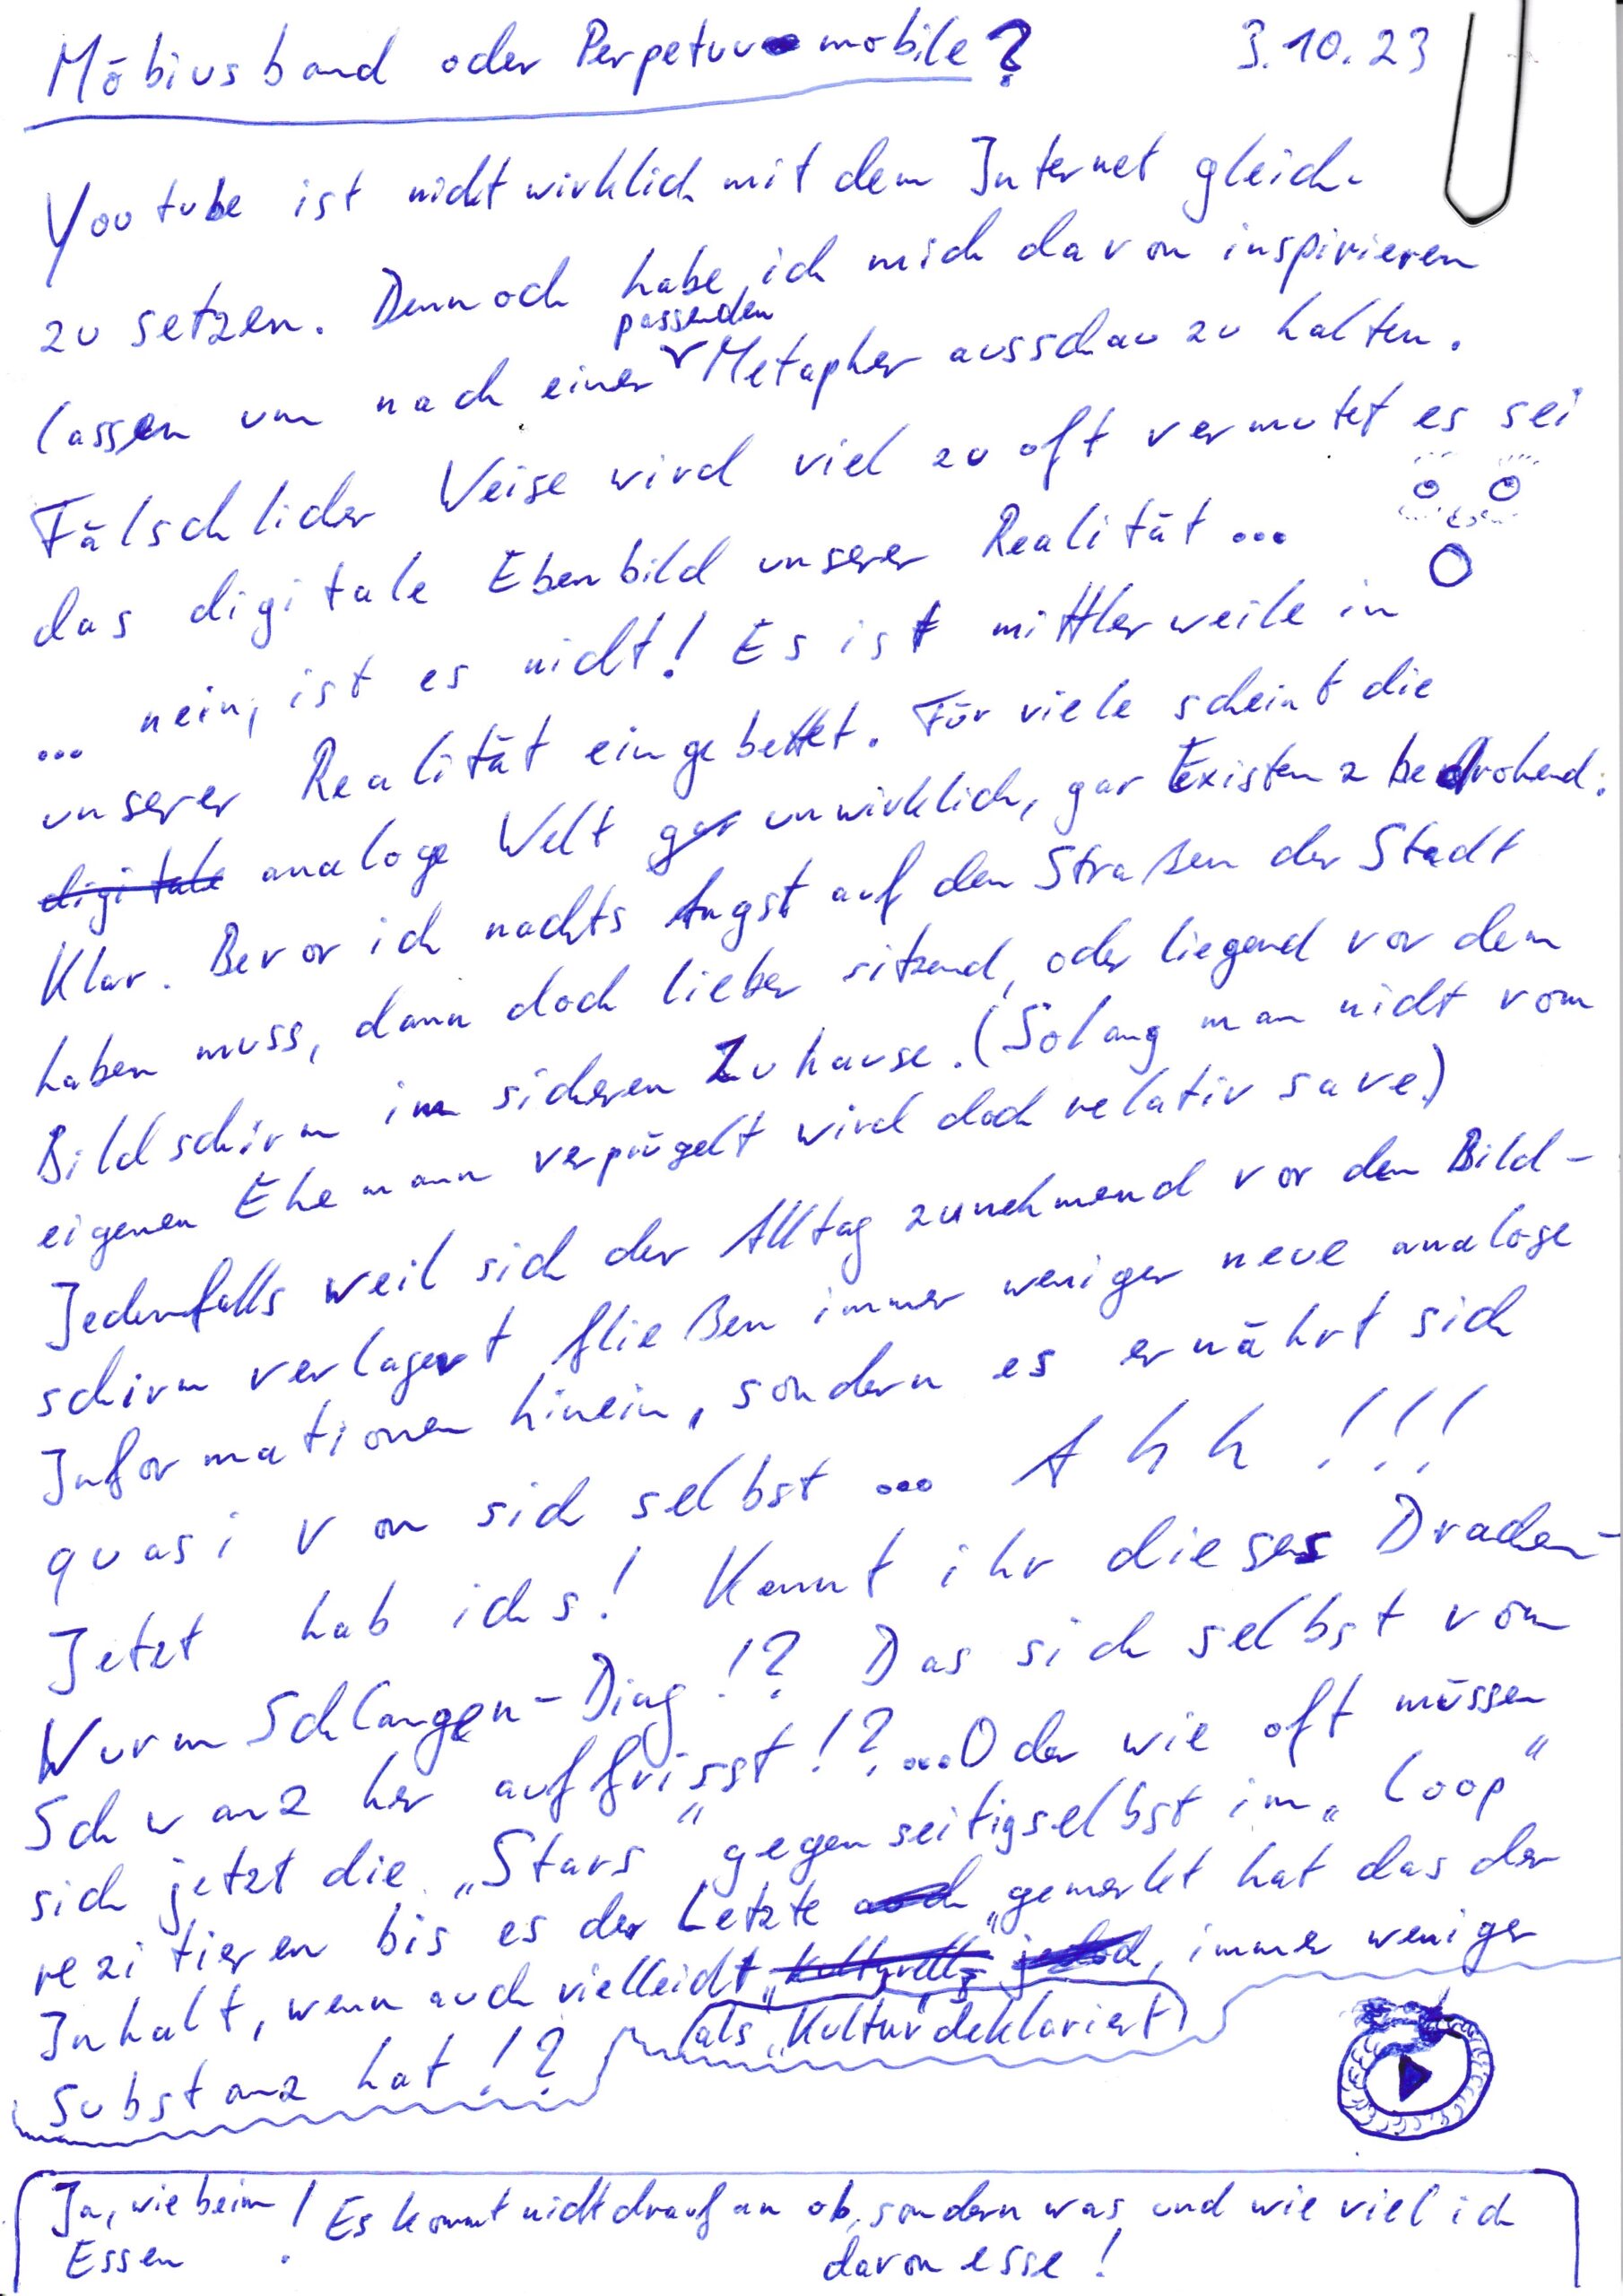 Möbiusband oder Perpetuumobile? 3.10.23
Youtube ist nicht wirklich mit dem Internet gleich-
zu setzen. Dennoch habe ich mich davon inspirieren
passenden
lassen um nach einer Metapher ausschau zu halten.
Fälschlicher Weise wird viel zu oft vermutet es sei
das digitale Ebenbild unserer Realität...
... nein, ist es nicht! Es ist mittlerweile in
unserer Realität eingebettet. Für viele scheint die
digitale analoge Welt gar unwirklich, gar Existenz bedrohend.
Klar. Bevor ich nachts Angst auf den Straßen der Stadt
haben muss, dann doch lieber sitzend, oder liegend vor dem
Bildschirm im sicheren Zuhause. (Solang man nicht vom
eigenen Ehemann verprügelt wird doch relativ save)
Jedenfalls weil sich der Alltag zunehmend vor den Bild-
schirm verlagert fließen immer weniger neue analoge
Informationen hinein, sondern es ernährt sich
quasi von sich selbst ... Ahh!!!
Jetzt hab ichs! Kennt ihr dieses Drachen-
Wurm Schlangen-Ding!? Das sich selbst vom
Schwanz her auffrisst!?...Oder wie oft müssen
sich jetzt die „Stars“ gegenseitigselbst im „Loop“
rezitieren bis es der Letzte auch gemerkt hat das der
Inhalt, wenn auch vielleicht „kulturell“ jedoch, immer weniger
(als „Kultur“ deklariert)
Substanz hat!?
Ja, wie beim ! Es kommt nicht drauf an ob, sondern was und wie viel ich
Essen davon esse!